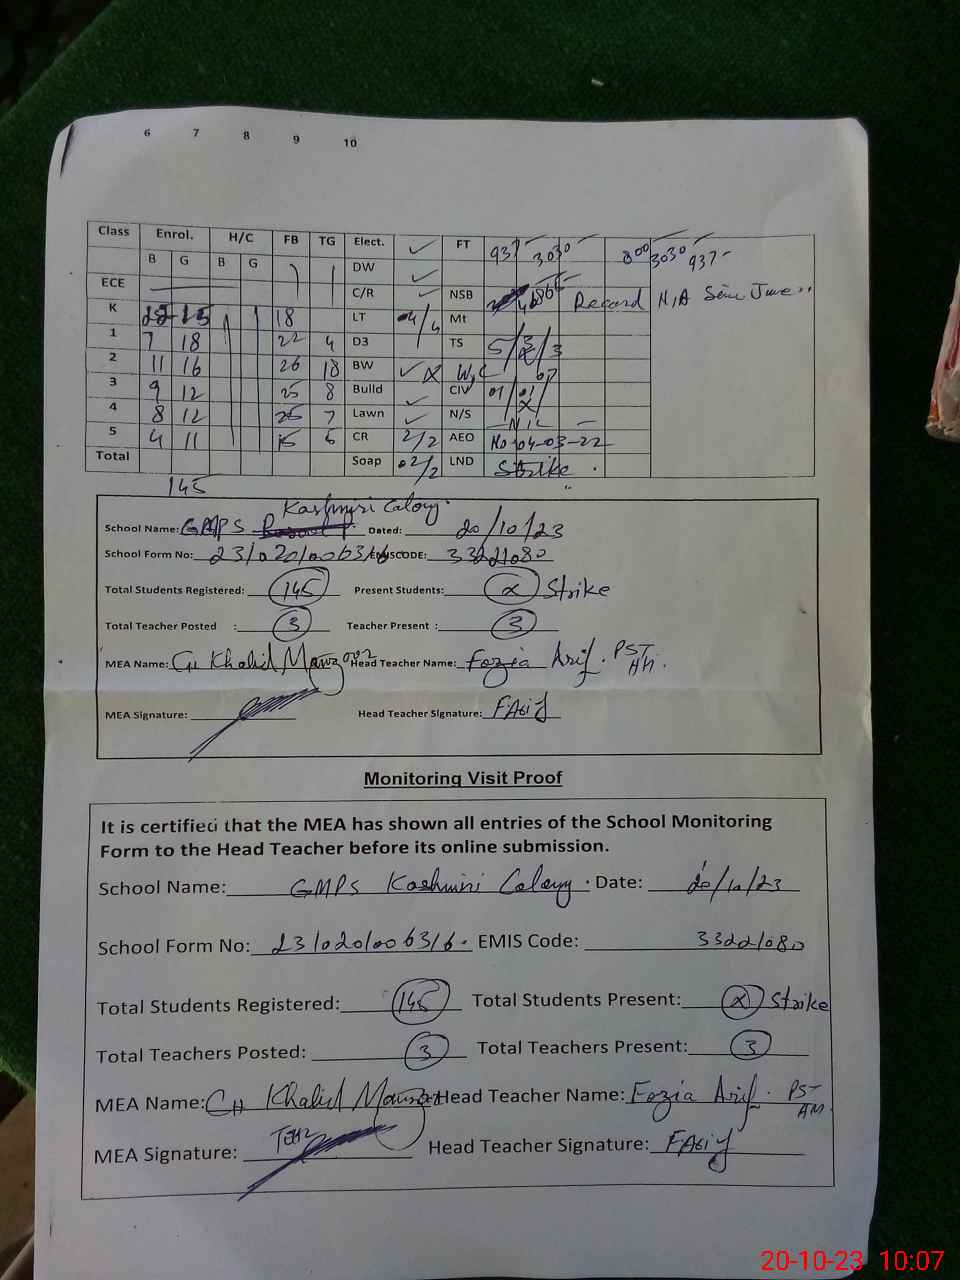 6 7 8 9 10
Class Enrol. H/C FB TG Elect. ✓ FT 937 3030 800 3030 937
B G B G DW ✓
ECE C/R ✓ NSB Record N,A Since June
K 15 18 LT 4/4 Mt
1 7 18 22 4 D3 TS 5/3/3
2 11 16 26 18 BW ✓ W,C
3 9 12 25 8 Build ✓ CIV 01/01/07
4 8 12 25 7 Lawn ✓ N/S NIL
5 4 11 15 6 CR 2/2 AEO No 04-03-22
Total Soap 02/2 LND Strike
145
Kashmiri Colony
School Name: GMPS Dated: 20/10/23
School Form No: 2310201006316 EMISCODE: 33221080
Total Students Registered: 145 Present Students: x Strike
Total Teacher Posted : 3 Teacher Present : 3
MEA Name: Ch Khalid Manzoor Head Teacher Name: Fozia Arif. PST
MEA Signature: Head Teacher Signature: FArif
Monitoring Visit Proof
It is certified that the MEA has shown all entries of the School Monitoring
Form to the Head Teacher before its online submission.
School Name: GMPS Kashmiri Colony. Date: 20/10/23
School Form No: 2310201006316. EMIS Code: 33221080
Total Students Registered: 145 Total Students Present: x Strike
Total Teachers Posted: 3 Total Teachers Present: 3
MEA Name: CH Khalid Manzoor Head Teacher Name: Fozia Arif. PST
MEA Signature: Head Teacher Signature: FArif
20-10-23 10:07